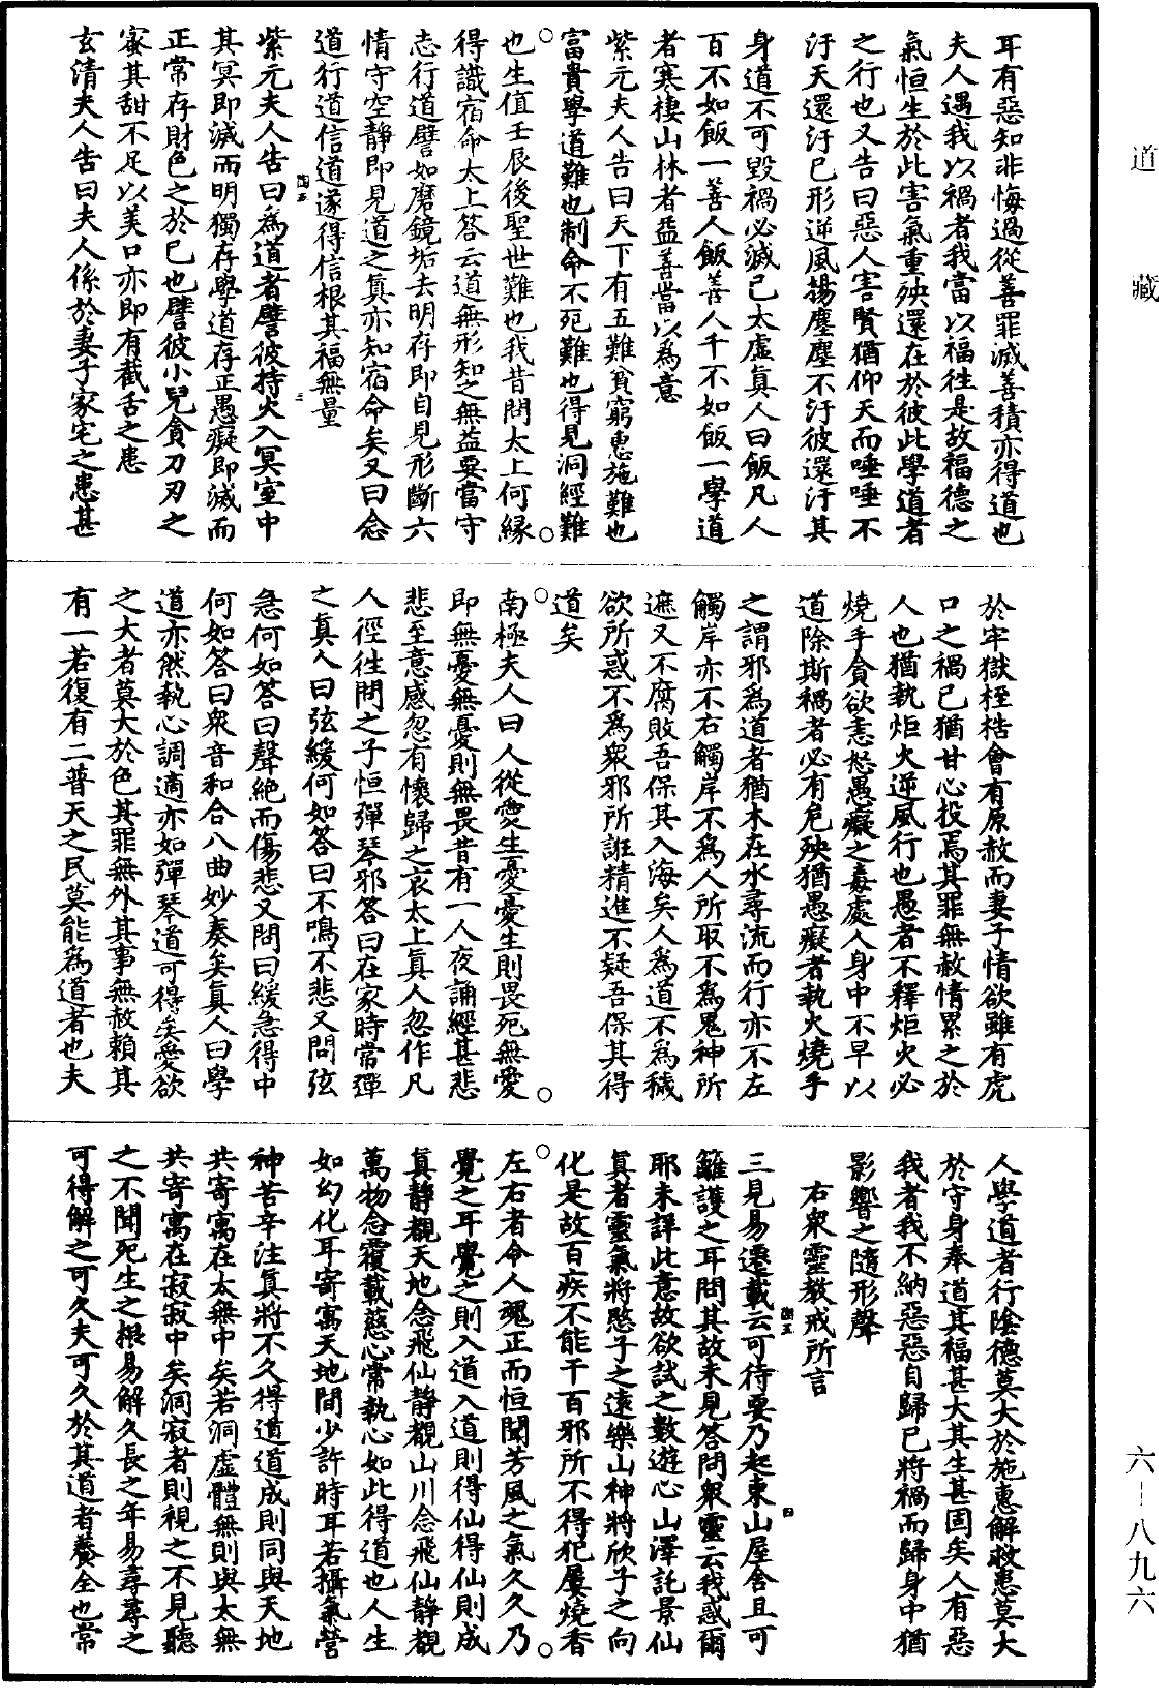 道藏
六-八九六
耳有惡知非悔過從善罪滅善積亦得道也
夫人遇我以禍者我當以福往是故福德之
氣恒生於此害氣重殃還在於彼此學道者
之行也又告曰惡人害賢猶仰天而唾唾不
汙天還汙己形逆風揚塵塵不汙彼還汙其
身道不可毀禍必滅己太虛真人曰飯凡人
百不如飯一善人飯善人千不如飯一學道
者寒棲山林者益善當以為意
紫元夫人告曰天下有五難貧窮惠施難也
富貴學道難也制命不死難也得見洞經難
也生值壬辰後聖世難也我昔問太上何緣
得識宿命太上答云道無形知之無益要當守
志行道譬如磨鏡垢去明存即自見形斷六
情守空靜即見道之真亦知宿命矣又曰念
道行道信道遂得信根其福無量
紫元夫人告曰為道者譬彼持火入冥室中
其冥即滅而明獨存學道存正愚癡即滅而
正常存財色之於己也譬彼小兒貪刀刃之
蜜其甜不足以美口亦即有截舌之患
玄清夫人告曰夫人係於妻子家宅之患甚
於牢獄桎梏會有原赦而妻子情欲雖有虎
口之禍已猶甘心投焉其罪無赦情累之於
人也猶執炬火逆風行也愚者不釋炬火必
燒手貪欲恚怒愚癡之毒處人身中不早以
道除斯禍者必有危殃猶愚癡者執火燒手
之謂邪為道者猶木在水尋流而行亦不左
觸岸亦不右觸岸不為人所取不為鬼神所
遮又不腐敗吾保其入海矣人為道不為穢
欲所惑不為眾邪所誑精進不疑吾保其得
道矣
南極夫人曰人從愛生憂憂生則畏死無愛
即無憂無憂則無畏昔有一人夜誦經甚悲
悲至意感忽有懷歸之哀太上真人忽作凡
人徑往問之子恒彈琴邪答曰在家時常彈
之真人曰弦緩何如答曰不鳴不悲又問弦
急何如答曰聲絕而傷悲又問曰緩急得中
何如答曰眾音和合八曲妙奏矣真人曰學
道亦然執心調適亦如彈琴道可得矣愛欲
之大者莫大於色其罪無外其事無赦賴其
有一若復有二普天之民莫能為道者也夫
人學道者行陰德莫大於施惠解救患莫大
於守身奉道其福甚大其生甚固矣人有惡
我者我不納惡惡自歸己將禍而歸身中猶
影響之隨形聲
右眾靈教戒所言
三見易遷載云可待要乃起東山屋舍且可
籬護之耳問其故未見答問眾靈云我惑爾
耶未詳此意故欲試之數遊心山澤託景仙
真者靈氣將愍子之遠樂山神將欣子之向
化是故百疾不能干百邪所不得犯屢燒香
左右者命人魂正而恒聞芳風之氣久久乃
覺之耳覺之則入道入道則得仙得仙則成
真靜觀天地念飛仙靜觀山川念飛仙靜觀
萬物念覆載慈心常執心如此得道也人生
如幻化耳寄寓天地間少許時耳若攝氣營
神苦辛注真將不久得道道成則同與天地
共寄寓在太無中矣若洞虛體無則與太無
共寄寓在寂寂中矣洞寂者則視之不見聽
之不聞死生之根易解久長之年易尋尋之
可得解之可久夫可久於其道者養全也常